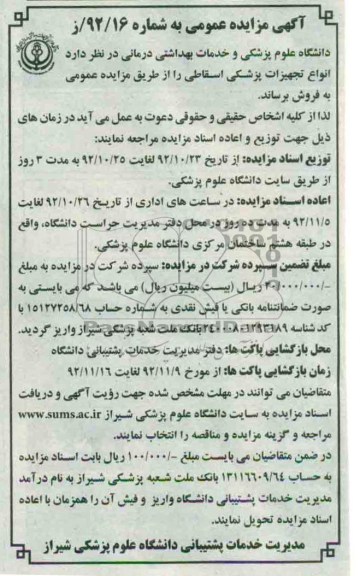 آگهی مزایده عمومی به شماره ۹۲/۱۶/ز
دانشگاه علوم پزشکی و خدمات بهداشتی درمانی در نظر دارد
انواع تجهیزات پزشکی اسقاطی را از طریق مزایده عمومی
به فروش برساند.
لذا از کلیه اشخاص حقیقی و حقوقی دعوت به عمل می آید در زمان های
ذیل جهت توزیع و اعاده اسناد مزایده مراجعه نمایند:
توزیع اسناد مزایده: از تاریخ ۹۲/۱۰/۲۳ لغایت ۹۲/۱۰/۲۵ به مدت ۳ روز
از طریق سایت دانشگاه علوم پزشکی.
اعاده اسناد مزایده: در ساعت های اداری از تاریخ ۹۲/۱۰/۲۶ لغایت
۹۲/۱۱/۵ به مدت ده روز در محل دفتر مدیریت حراست دانشگاه، واقع
در طبقه هشتم ساختمان مرکزی دانشگاه علوم پزشکی.
مبلغ تضمین سپرده شرکت در مزایده: سپرده شرکت در مزایده به مبلغ
۲۰/۰۰۰/۰۰۰/- ریال (بیست میلیون ریال) می باشد که می بایستی به
صورت ضمانتنامه بانکی یا فیش نقدی به شماره حساب ۱۵۱۲۷۲۵۸۰۶۸ با
کد شناسه بانک ملت شعبه پزشکی شیراز واریز گردید.
محل بازگشایی پاکت ها: دفتر مدیریت خدمات پشتیبانی دانشگاه
زمان بازگشایی پاکت ها: از مورخ ۹۲/۱۱/۹ لغایت ۹۲/۱۱/۱۶
متقاضیان می توانند در مهلت مشخص شده جهت رؤیت آگهی و دریافت
اسناد مزایده به سایت دانشگاه علوم پزشکی شیراز www.sums.ac.ir
مراجعه و گزینه مزایده و مناقصه را انتخاب نمایند.
در ضمن متقاضیان می بایست مبلغ ۱۰۰/۰۰۰/- ریال بابت اسناد مزایده
به حساب ۱۳۱۱۶۶۰۹/۶۴ بانک ملت شعبه پزشکی شیراز به نام درآمد
مدیریت خدمات پشتیبانی دانشگاه واریز و فیش آن را همزمان با اعاده
اسناد مزایده تحویل نمایند.
مدیریت خدمات پشتیبانی دانشگاه علوم پزشکی شیراز